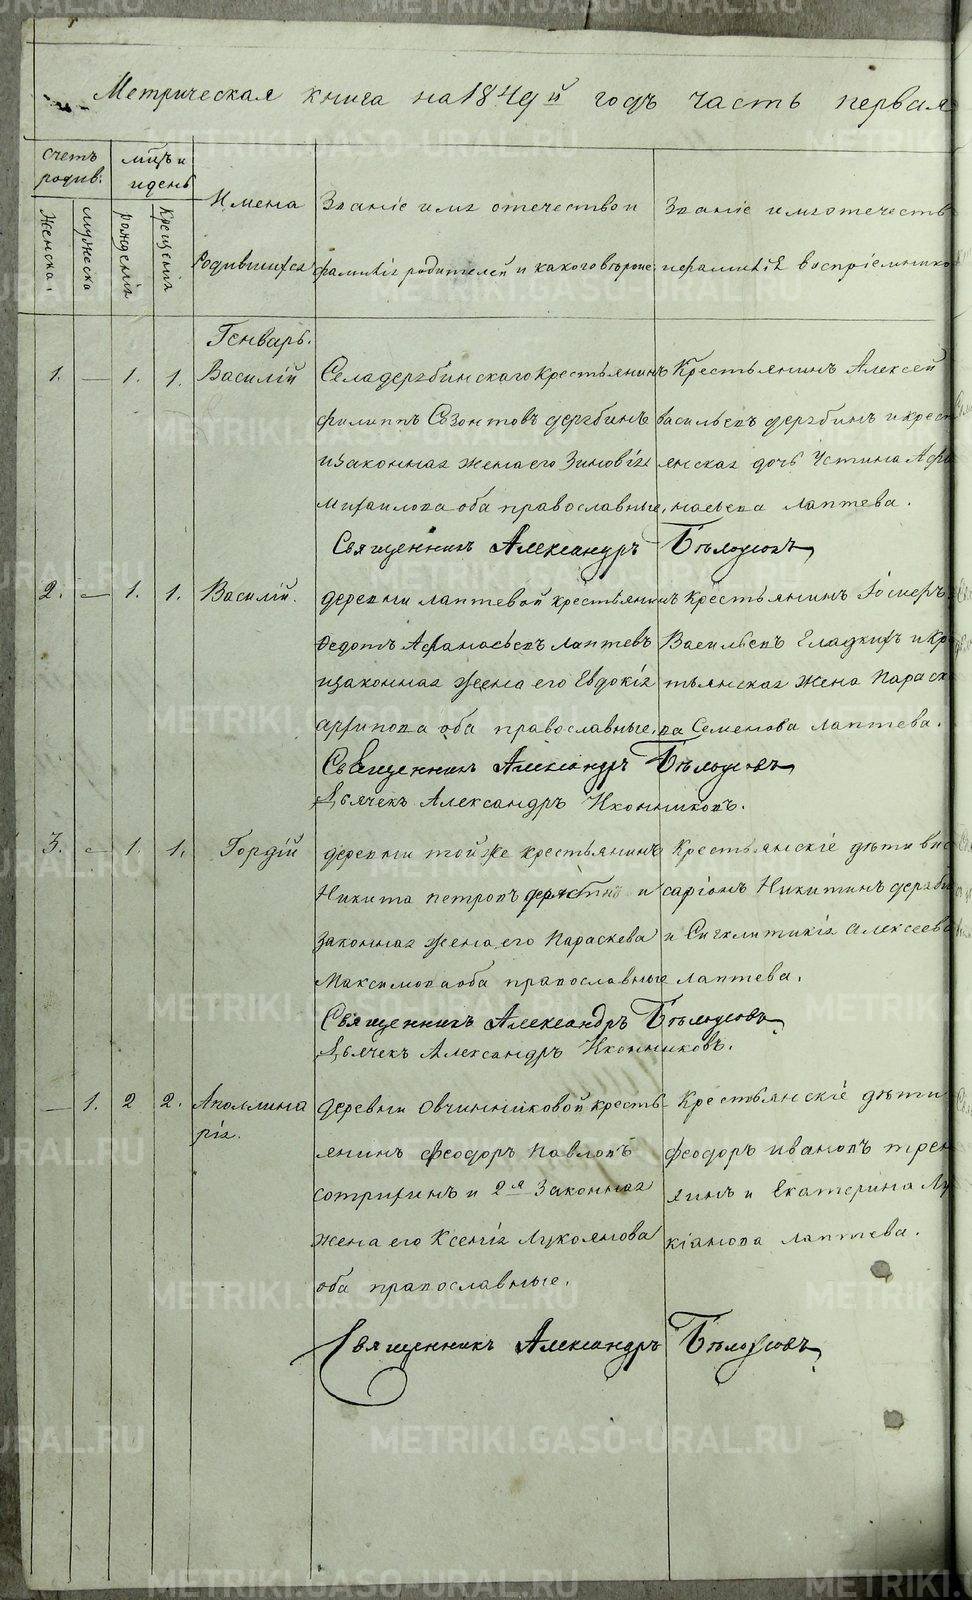 Метрическая книга на 1849й годъ часть первая
счетъ родив:
мцъ и день
Женска:
мужеска
рожденія
крещенія
Имена
Родившихся
Званіе имя отечество и
фамилія родителей и какого вѣроис:
Званіе имя отечеств
и фамилія воспріемнико
Генварь.
1. — 1. 1. Василій
Села дерябинскаго крестьянинъ
филиппъ Созонтовъ дерябинъ
и законная жена его Зиновія
Михаилова оба православные,
Крестьянинъ Алексей
васильевъ дерябинъ и крест
янская дочь Устина Афа
насьева лаптева.
Священникъ Александръ Бѣлоусовъ
2. — 1. 1. Василій.
деревни лаптевой крестьянинъ
Федотъ Афанасьевъ лаптевъ
и законная жена его Евдокія
архипова оба православные.
Крестьянинъ
Васильевъ Гладкихъ и кр
тьянская жена Параск
ва Семенова лаптева.
Священникъ Александръ Бѣлоусовъ
Дьячекъ Александръ Иконниковъ.
3. — 1. 1. Гордій
деревни той же крестьянинъ
Никита петровъ дерябинъ и
законная жена его Параскева
Максимова оба православные
Крестьянскіе дѣти вис
саріонъ Никитинъ дераби
и Синклитикія алексеева
лаптева.
Священникъ Александръ Бѣлоусовъ
Дьячекъ Александръ Иконниковъ.
— 1. 2 2. Аполлина
рія.
деревни Овчинниковой кресть-
янинъ Феодоръ Павловъ
сотрихинъ и 2я Законная
жена его Ксенія Лукоянова
оба православные.
Крестьянскіе дѣти
феодоръ ивановъ трен
ихинъ и Екатерина Лу
кіанова лаптева.
Священникъ Александръ Бѣлоусовъ
METRIKI.GASO-URAL.RU